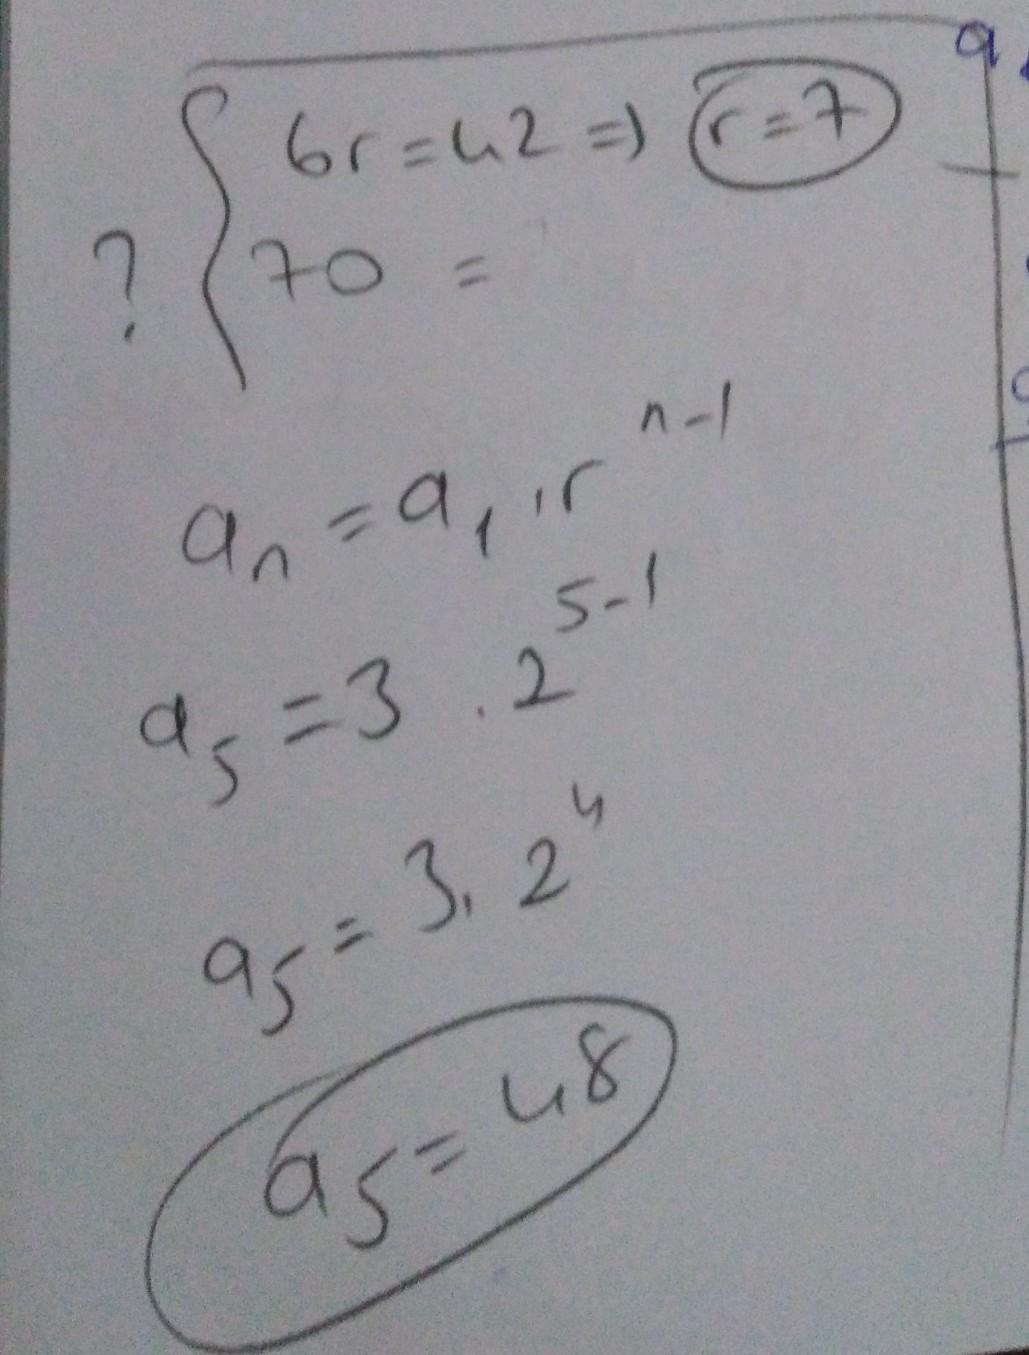 6r = 42 => r = 7
? { 70 =
aₙ = a₁ . r^(n-1)
a₅ = 3 . 2^(5-1)
a₅ = 3 . 2^4
a₅ = 48